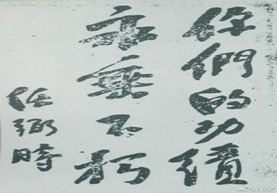 你們的功績
亦垂不朽
任弼時